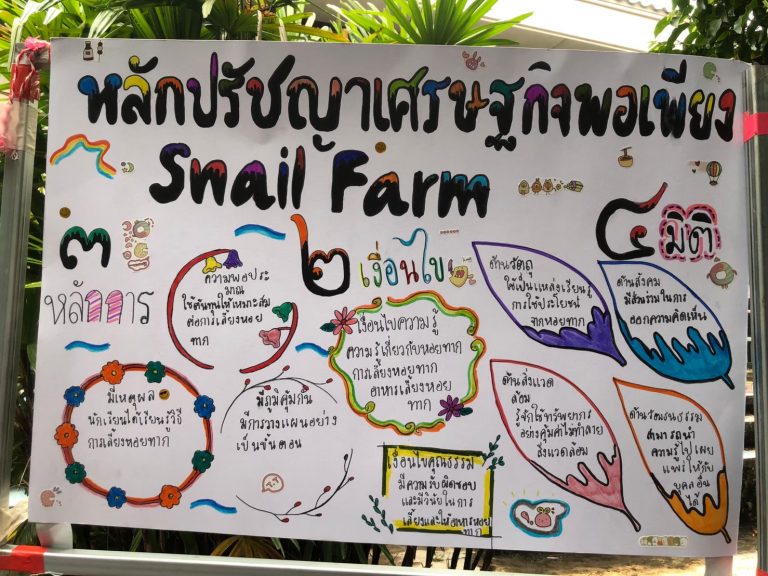 หลักปรัชญาเศรษฐกิจพอเพียง
Snail Farm
๓
หลักการ
ความพอประ
มาณ
ใช้ต้นทุนให้เหมาะสม
ต่อการเลี้ยงหอย
ทาก
มีเหตุผล
นักเรียนได้เรียนรู้วิธี
การเลี้ยงหอยทาก
มีภูมิคุ้มกัน
มีการวางแผนอย่าง
เป็นขั้นตอน
๒
เงื่อนไข
เงื่อนไขความรู้
ความรู้เกี่ยวกับหอยทาก
การเลี้ยงหอยทาก
อาหารเลี้ยงหอย
ทาก
เงื่อนไขคุณธรรม
มีความรับผิดชอบ
และมีวินัยในการ
เลี้ยงและให้อาหารหอย
ทาก
๔
มิติ
ด้านวัตถุ
ใช้เป็นแหล่งเรียนรู้
การใช้ประโยชน์
จากหอยทาก
ด้านสังคม
มีส่วนร่วมในการ
ออกความคิดเห็น
ด้านสิ่งแวด
ล้อม
รู้จักใช้ทรัพยากร
อย่างคุ้มค่าไม่ทำลาย
สิ่งแวดล้อม
ด้านวัฒนธรรม
สามารถนำ
ความรู้ไปเผย
แพร่ให้กับ
บุคลอื่น
ได้
T.T